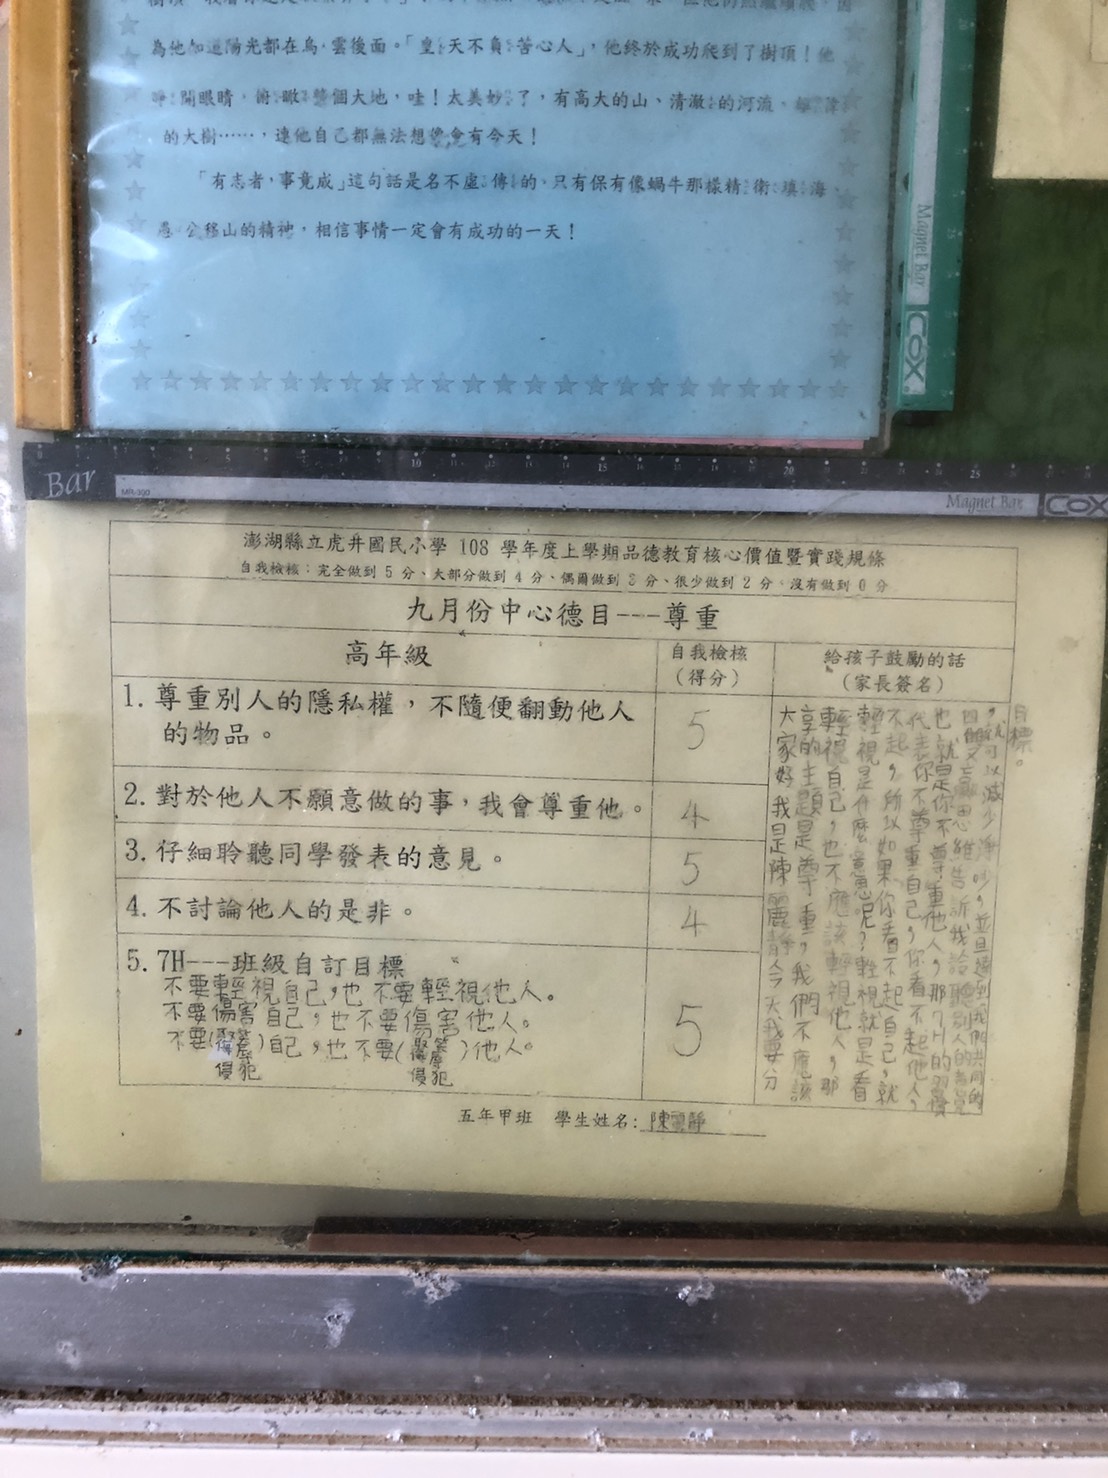 為他知道陽光都在烏雲後面。「皇天不負苦心人」，他終於成功爬到了樹頂！他
睜開眼睛，俯瞰整個大地，哇！太美妙了，有高大的山、清澈的河流、
的大樹……，連他自己都無法想像會有今天！
「有志者，事竟成」這句話是名不虛傳的，只有保有像蝸牛那樣精衛填海、
愚公移山的精神，相信事情一定會有成功的一天！
Magnet Bar COX
Bar
MR-300
Magnet Bar COX
澎湖縣立虎井國民小學 108 學年度上學期品德教育核心價值暨實踐規條
自我檢核：完全做到 5 分、大部分做到 4 分、偶爾做到 3 分、很少做到 2 分、沒有做到 0 分
九月份中心德目---尊重
高年級
自我檢核
（得分）
給孩子鼓勵的話
（家長簽名）
1. 尊重別人的隱私權，不隨便翻動他人
的物品。
5
2. 對於他人不願意做的事，我會尊重他。
4
3. 仔細聆聽同學發表的意見。
5
4. 不討論他人的是非。
4
5. 7H---班級自訂目標
不要輕視自己，也不要輕視他人。
不要傷害自己，也不要傷害他人。
不要( )自己，也不要( )他人。
侵犯 侵犯
5
大家好我是陳靜今天我要分
享的主題是尊重，我們不應該
輕視自己，也不應該輕視他人，那
輕視是什麼意思呢？輕視就是看
不起，所以如果你看不起自己，就
代表你不尊重自己，你看不起他人，
也就是你不尊重他人，那7H的習慣
思維告訴我該聽別人的意見
，就可以減少爭吵，並且達到我們共同的
目標。
五年甲班 學生姓名：陳靜